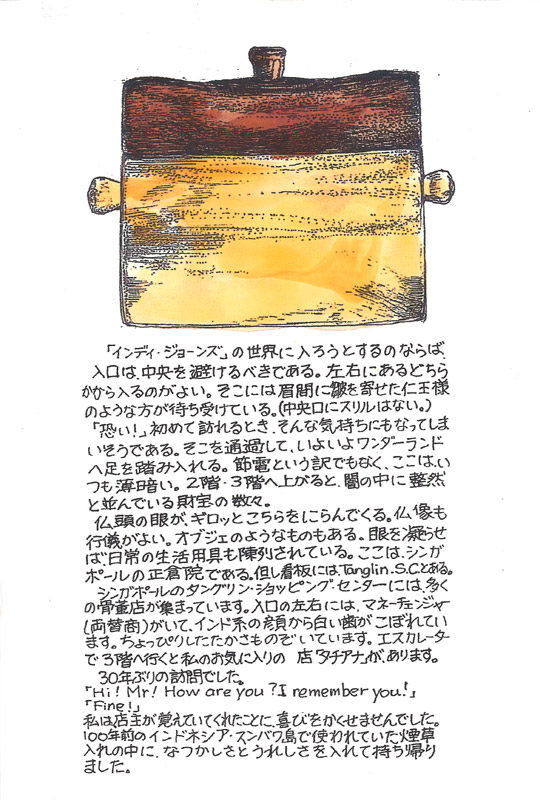 「インディ・ジョーンズ」の世界に入ろうとするのならば、
入口は、中央を避けるべきである。左右にあるどちら
かから入るのがよい。そこには眉間に皺を寄せた仁王様
のような方が待ち受けている。(中央口にスリルはない。)
「恐い!」初めて訪れるとき、そんな気持ちにもなってしま
いそうである。そこを通過して、いよいよワンダーランド
へ足を踏み入れる。節電という訳でもなく、ここは、い
つも薄暗い。2階・3階へ上がると、闇の中に整然
と並んでいる財宝の数々。
仏頭の眼が、ギロッとこちらをにらんでくる。仏像も
行儀がよい。オブジェのようなものもある。眼を凝らせ
ば、日常の生活用具も陳列されている。ここは、シンガ
ポールの正倉院である。但し看板には、Tanglin.S.Cとある。
シンガポールのタングリン・ショッピング・センターには、多く
の骨董店が集まっています。入口の左右には、マネーチェンジャー
(両替商)がいて、インド系の顔から白い歯がこぼれてい
ます。ちょっぴりしたたかさものぞいています。エスカレータ
で3階へ行くと私のお気に入りの 店「タチアナ」が、あります。
30年ぶりの訪問でした。
「Hi! Mr! How are you? I remember you!」
「Fine!」
私は店主が覚えていてくれたことに、喜びをかくせませんでした。
100年前のインドネシア・スンバワ島で使われていた煙草
入れの中に、なつかしさとうれしさを入れて持ち帰り
ました。